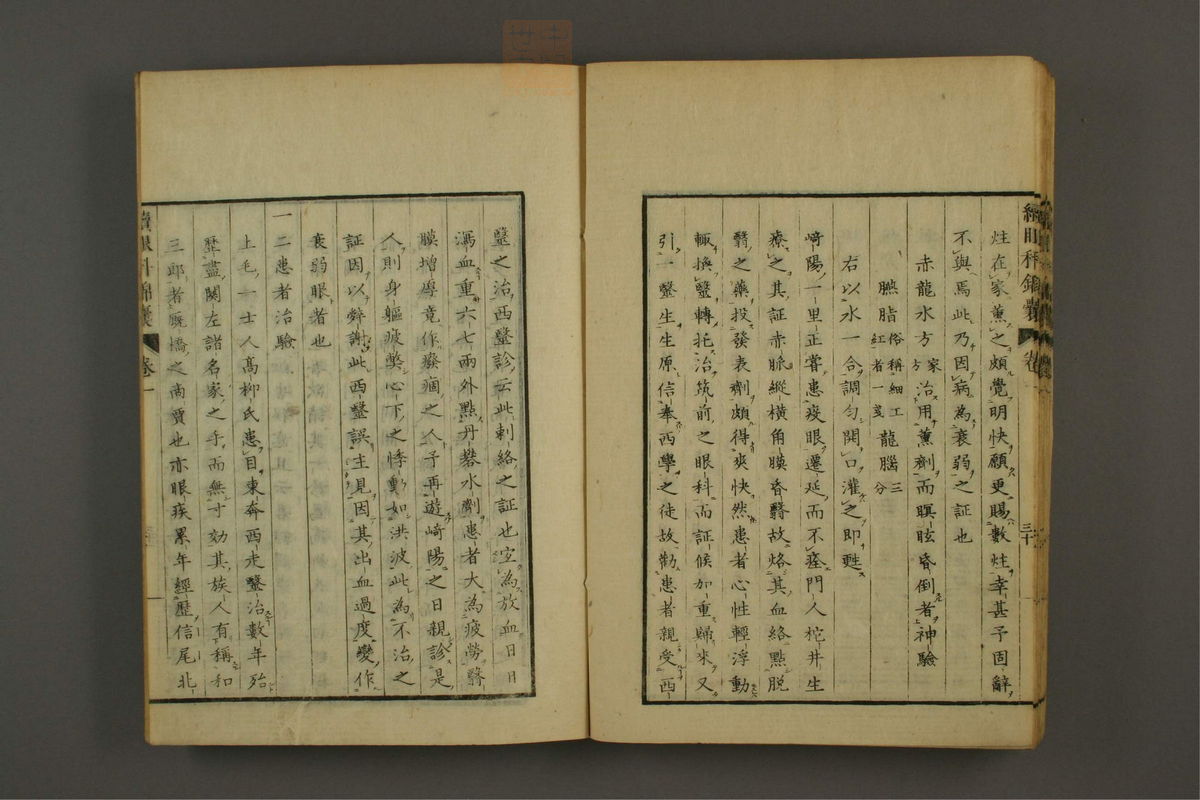 炷在家薫之頗覺明快願更賜數炷幸甚予固辭
不與焉此乃因病為衰弱之証也
赤龍水方家方治用薫劑而瞑眩昏倒者神驗
臙脂俗稱細工紅者一戔龍腦三分
右以水一合調匀開口灌之即甦
崎陽一里正嘗患疫眼遷延而不痊門人柁井生
療之其証赤脈縱橫角膜昏翳故烙其血絡點脱
翳之藥投發表劑頗得爽快然患者心性輕浮動
輙換醫轉托治筑前之眼科而証候加重歸來又
引一醫生生原信奉西學之徒故勸患者親受西
續眼科錦囊 卷一 三十
醫之治西醫診云此刺絡之証也宜為放血日日
瀉血重六七兩外點丹礬水劑患者大為疲勞翳
膜增厚竟作癈痼之人予再遊崎陽之日親診是
人則身軀疲弊心下之悸動如洪波此為不治之
証因以辤謝此西醫誤主見因其出血過度變作
衰弱眼者也
一二患者治驗
上毛一士人髙柳氏患目東奔西走醫治數年殆
歴盡関左諸名家之手而無寸効其族人有稱和
三郎者厩橋之商賈也亦眼疾累年經歴信尾北
續眼科錦囊 卷一